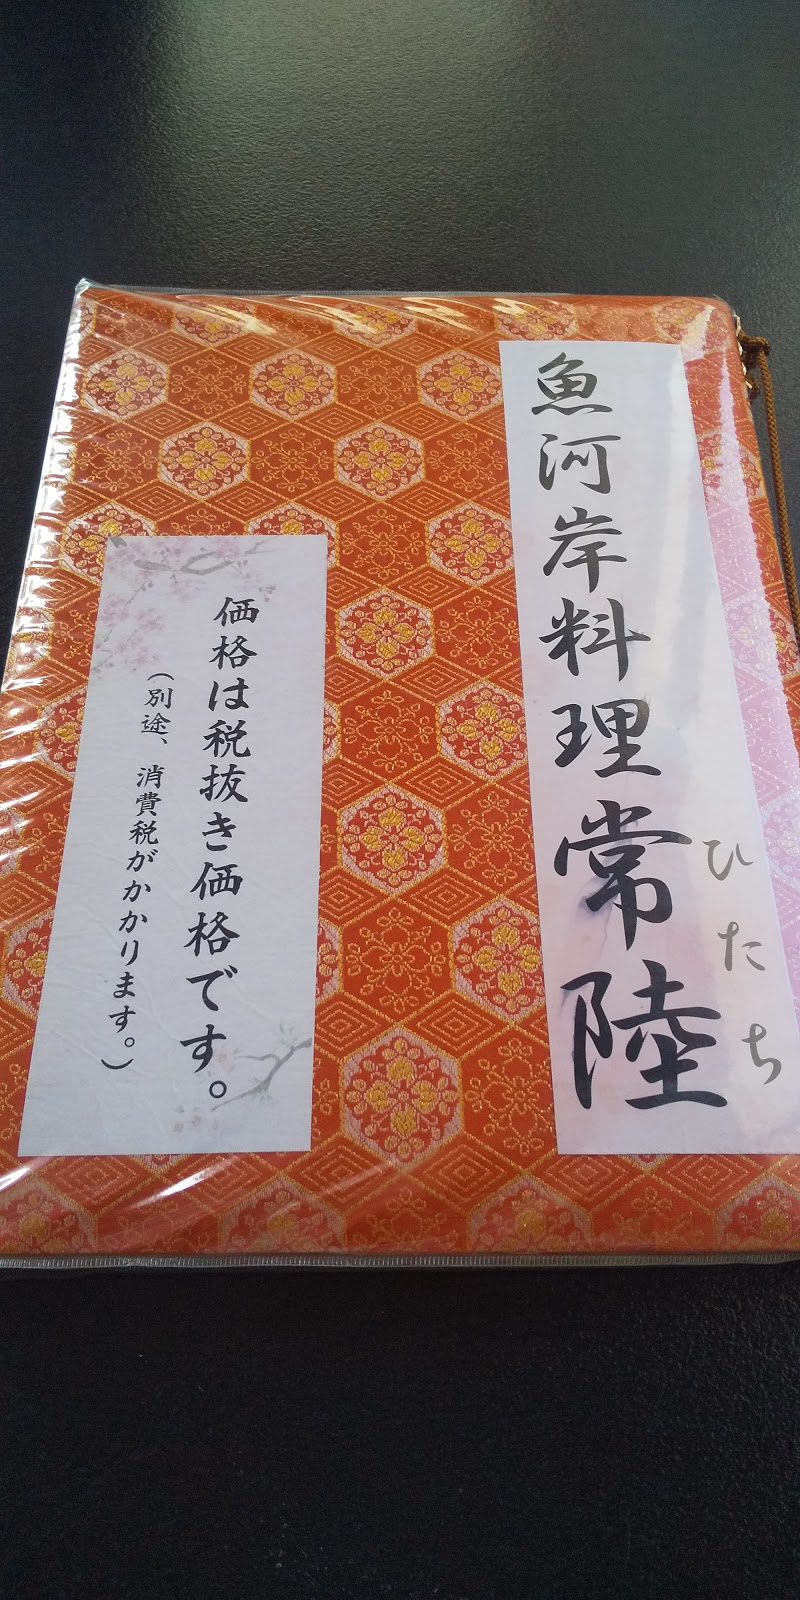 魚河岸料理常陸
ひたち
価格は税抜き価格です。
（別途、消費税がかかります。）